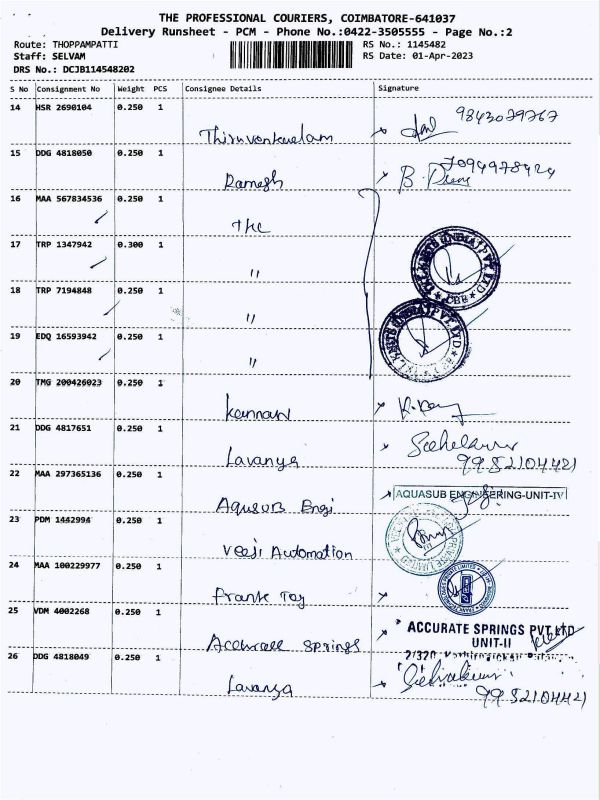 THE PROFESSIONAL COURIERS, COIMBATORE-641037
Delivery Runsheet - PCM - Phone No.:0422-3505555 - Page No.:2
Route: THOPPAMPATTI
RS No.: 1145482
Staff: SELVAM
RS Date: 01-Apr-2023
DRS No.: DCJB114548202
S No Consignment No Weight PCS Consignee Details Signature
14 HSR 2690104 0.250 1 9843079767
Thiruvenkadam
15 DDG 4818050 0.250 1 7094978424
Ramesh B.
16 MAA 567834536 0.250 1
THC
17 TRP 1347942 0.300 1
"
18 TRP 7194848 0.250 1
"
19 EDQ 16593942 0.250 1
"
20 TMG 200426023 0.250 1
Kannan
21 DDG 4817651 0.250 1
Lavanya 9952104421
22 MAA 297365136 0.250 1
Aqusub Engi AQUASUB ENGINEERING-UNIT-IV
23 PDM 1442994 0.250 1
Veeji Automation
24 MAA 100229977 0.250 1
Frank Toy
25 VDM 4002268 0.250 1
Accurate Springs ACCURATE SPRINGS PVT LTD
UNIT-II
26 DDG 4818049 0.250 1
Lavanya 9952104421